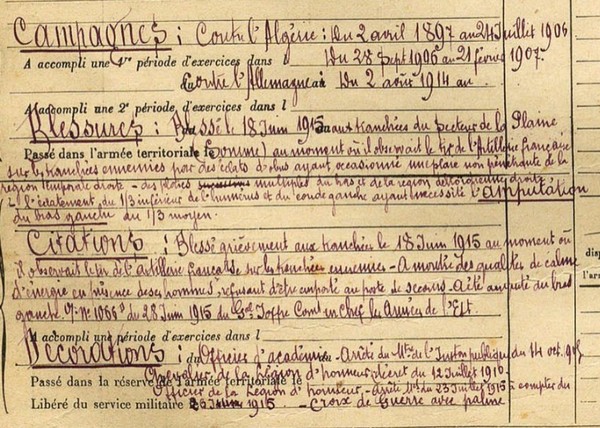 Campagnes : Contre l'Algérie : Du 2 avril 1897 au 24 Juillet 1906
A accompli une 1re période d'exercices dans l Du 28 Sept 1906 au 21 février 1907.
Contre l'Allemagne Du 2 août 1914 au
A accompli une 2e période d'exercices dans l
Blessures : Blessé le 18 Juin 1915 aux tranchées du secteur de la Plaine
Passé dans l'armée territoriale le (Somme) au moment où il observait le tir de l'Artillerie française
sur les tranchées ennemies par des éclats d'obus ayant occasionné une plaie non pénétrante de la
région temporale droite - des plaies multiples du bras et de la région deltoïdienne droite
l'éclatement du 1/3 inférieur de l'humérus et du coude gauche ayant nécessité l'amputation
du bras gauche au 1/3 moyen.
Citations : Blessé grièvement aux tranchées le 18 Juin 1915 au moment où
il observait le tir de l'artillerie française sur les tranchées ennemies - A montré des qualités de calme
d'énergie en présence de ses hommes, refusant d'être emporté au poste de secours - A été amputé du bras
gauche. O. No 1066 D du 28 Juin 1915 du Gal Joffre Comt en Chef les Armées de l'Est.
A accompli une période d'exercices dans l
Décorations : Officier d'académie - Arrêté du Mtre de l'Inston publique du 14 oct.
Chevalier de la Légion d'honneur, décret du 12 Juillet 1916
Passé dans la réserve de l'armée territoriale le
Officier de la Légion d'honneur - Arrêté Mel du 23 Juillet 1915 à compter du
Libéré du service militaire 26 Juin 1915 - Croix de Guerre avec palme